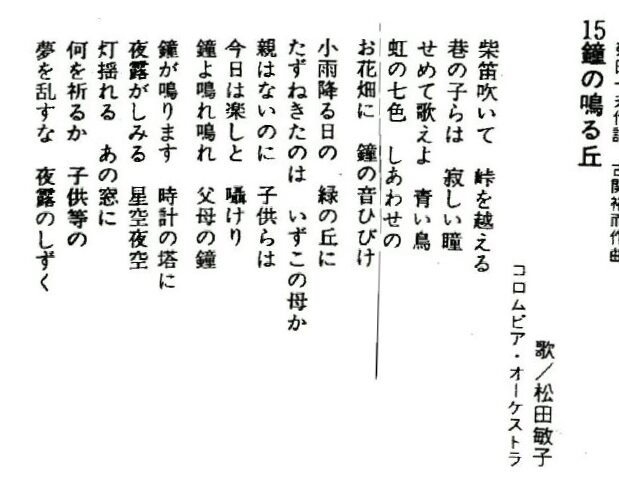 15鐘の鳴る丘
歌／松田敏子
コロムビア・オーケストラ
柴笛吹いて　峠を越える
巷の子らは　寂しい瞳
せめて歌えよ　青い鳥
虹の七色　しあわせの
お花畑に　鐘の音ひびけ
小雨降る日の　緑の丘に
たずねきたのは　いずこの母か
親はないのに　子供らは
今日は楽しと　囁けり
鐘よ鳴れ鳴れ　父母の鐘
鐘が鳴ります　時計の塔に
夜露がしみる　星空夜空
灯揺れる　あの窓に
何を祈るか　子供等の
夢を乱すな　夜露のしずく